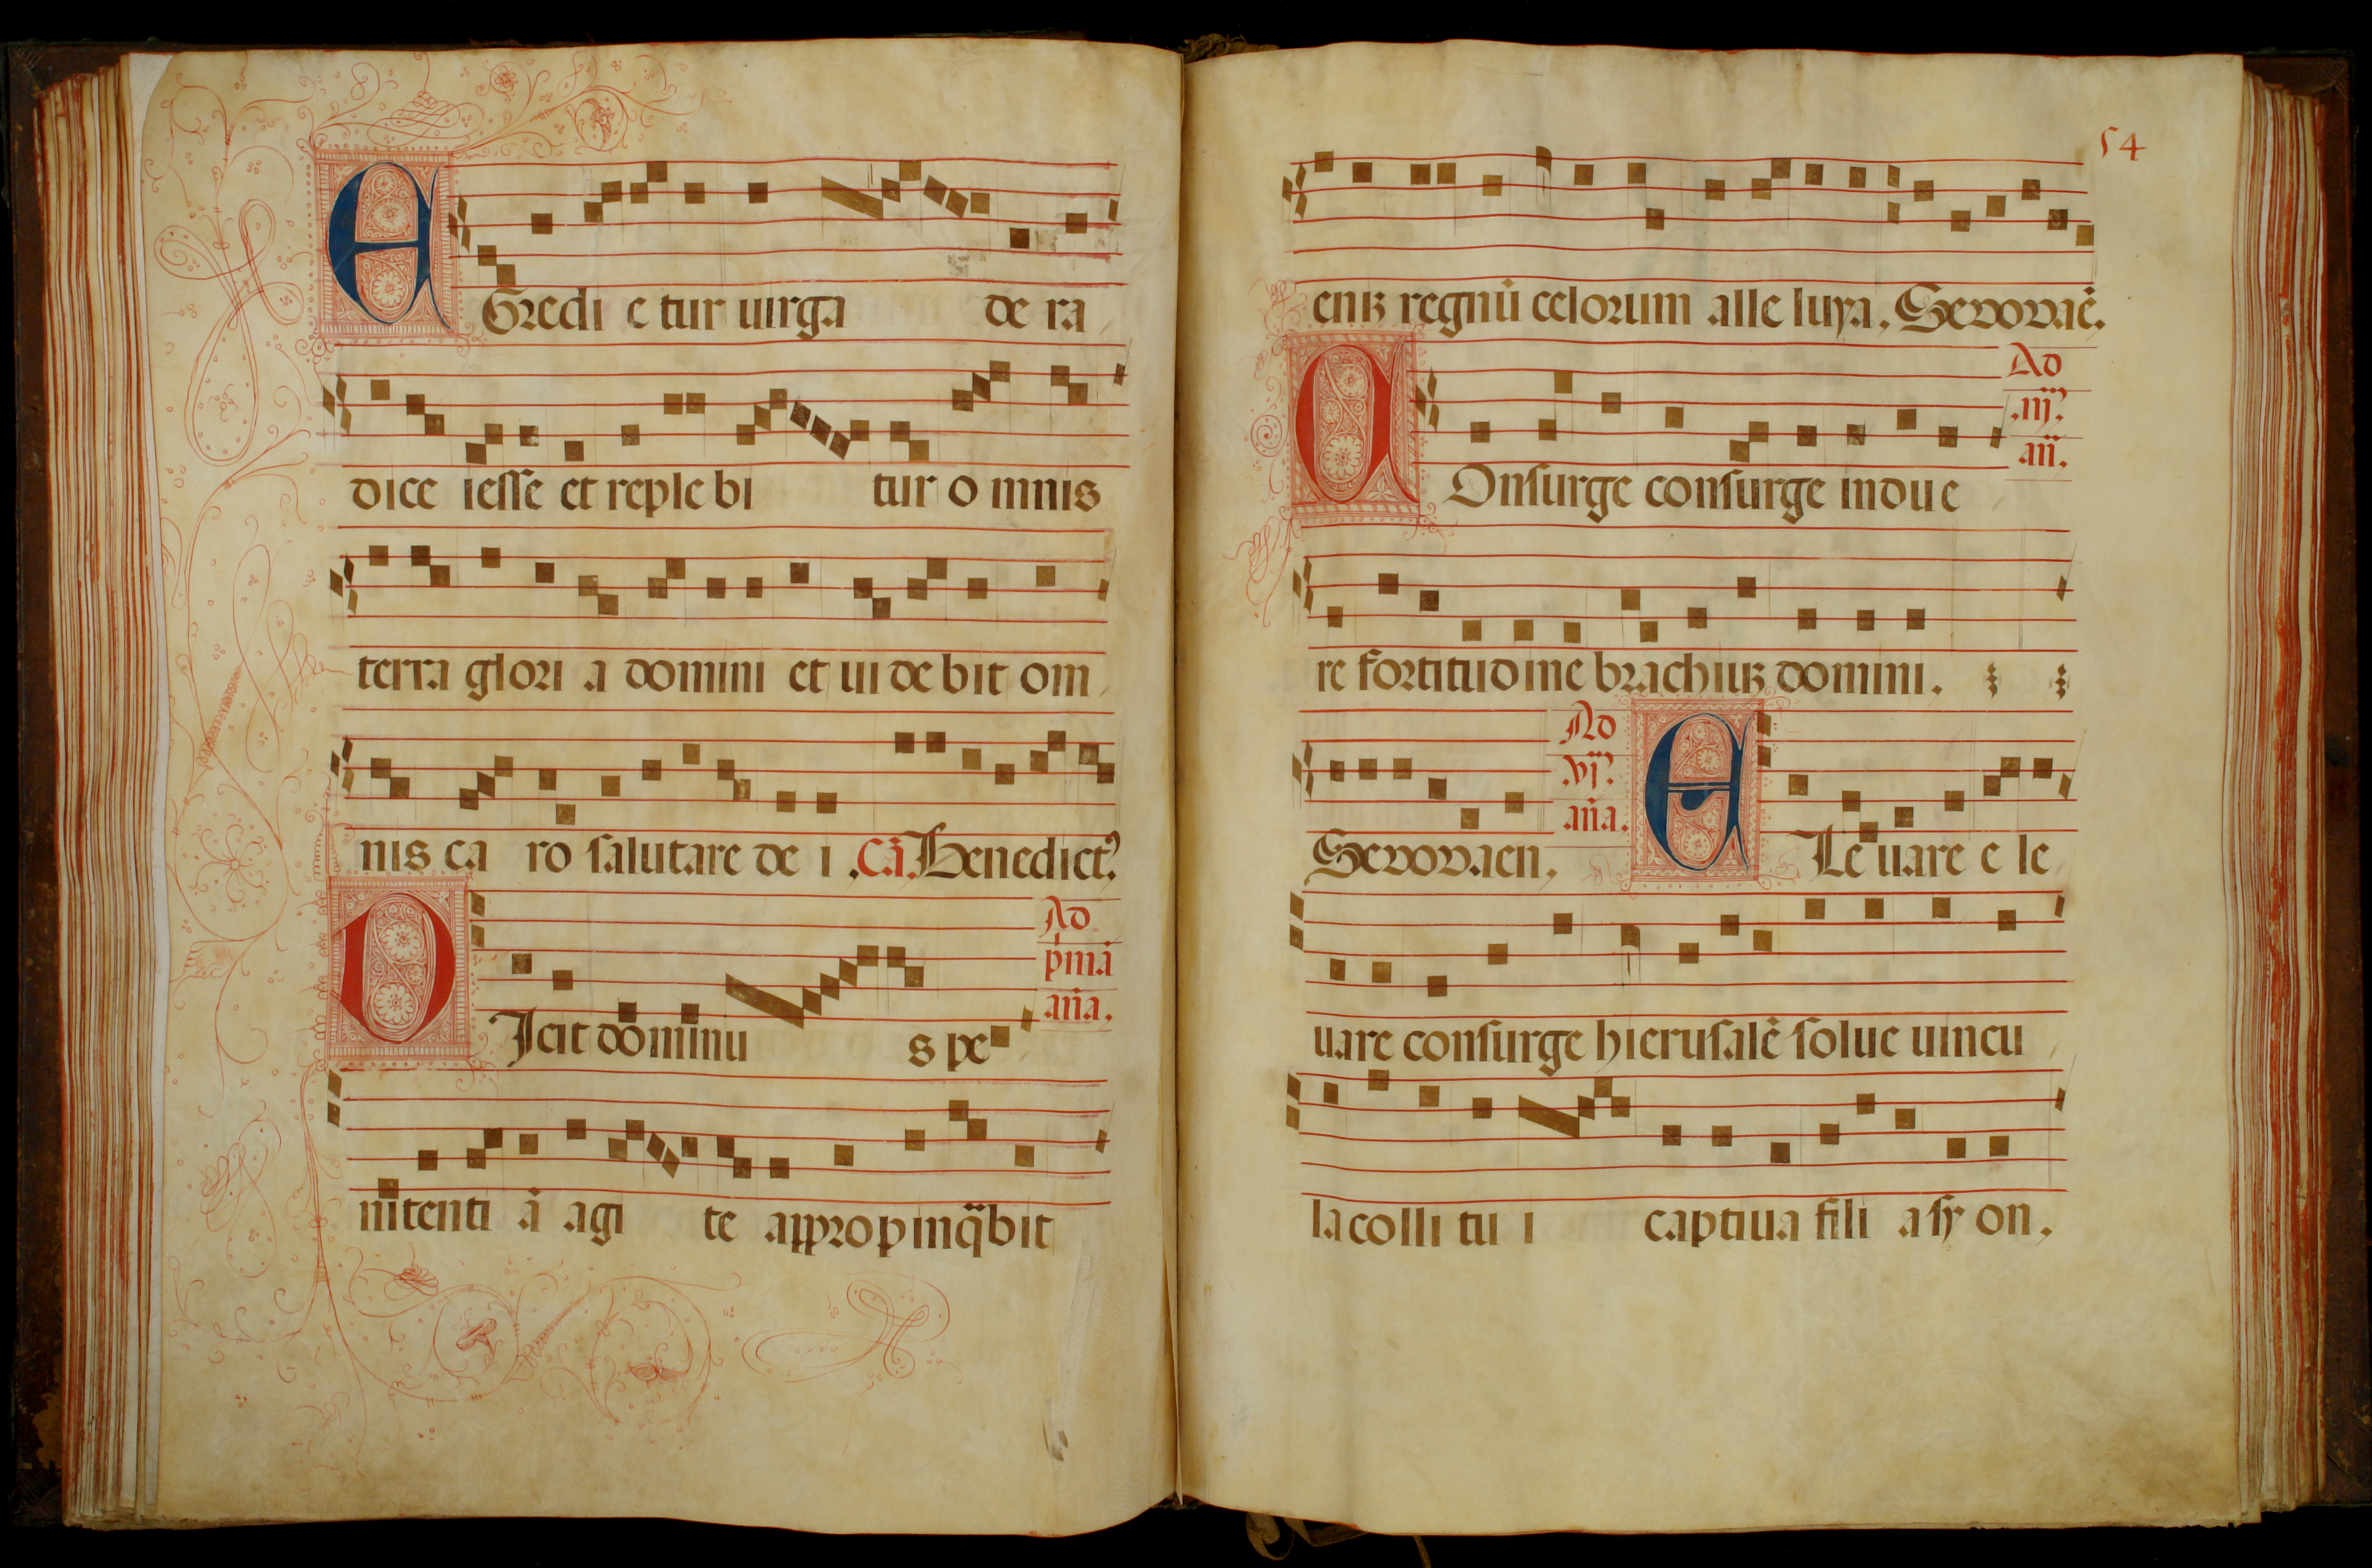 EGredi e tur uirga de ra
dice iesse et reple bi tur o mnis
terra glori a domini et ui de bit om
nis ca ro salutare de i . Cā. Benedict9.
Ad
pmā
aña.
DIcit dominu s pe
nitenti ā agi te appropinq̄bit
54
eniʒ regnū celorum alle luya. Seuouaē.
Ad
.iij.
añ.
COnsurge consurge indue
re fortitudine brachiuʒ domini.
Seuouaen.
Ad
.vj.
aña.
ELe uare e le
uare consurge hierusalē solue uincu
la colli tu i captiua fili a sy on.